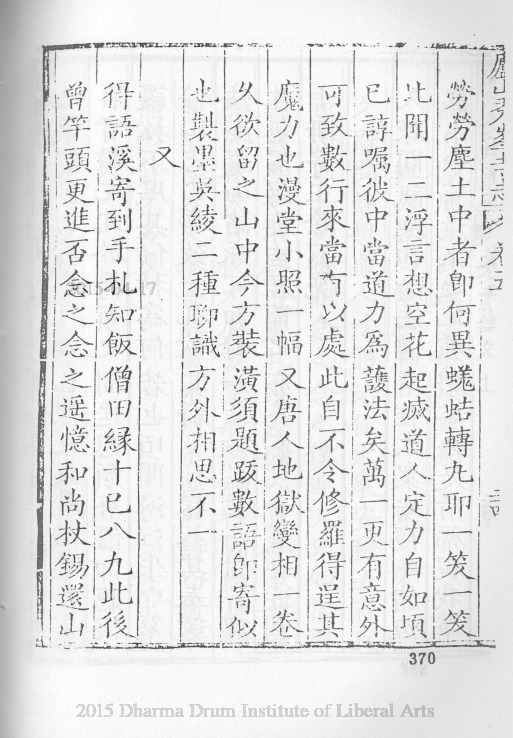 廬山秀峯寺志 卷五
勞勞塵土中者卽何異蜣蛣轉九耶一笑一笑
比聞一二浮言想空花起滅道人定力自如頃
已諄囑彼中當道力爲護法矣萬一更有意外
可致數行來當有以處此自不令修羅得逞其
魔力也漫堂小照一幅又唐人地獄變相一卷
久欲留之山中今方裝潢須題跋數語卽寄似
也製墨吳綾二種聊識方外相思不一
又
得語溪寄到手札知飯僧田緣十已八九此後
曾竿頭更進否念之念之遥憶和尚杖錫還山
370
2015 Dharma Drum Institute of Liberal Arts